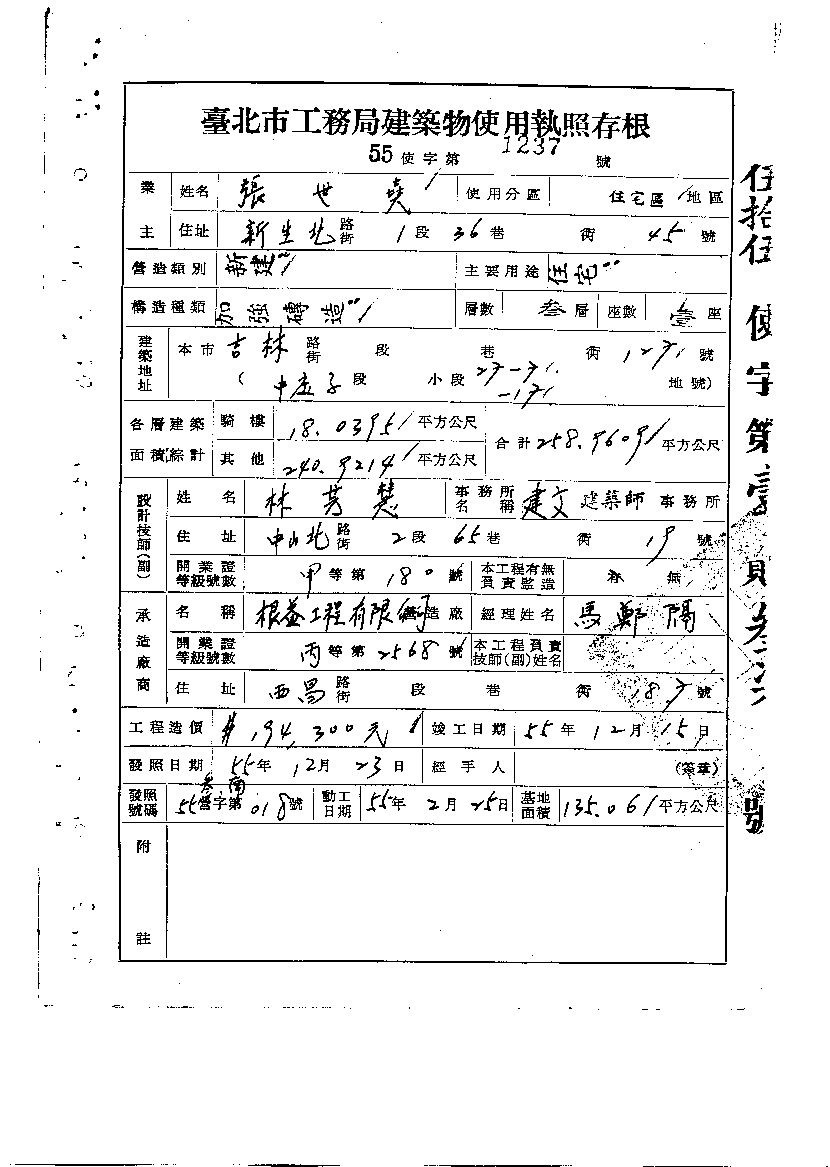 臺北市工務局建築物使用執照存根
55使字第1237號
業主 姓名 張世堯 使用分區 住宅區 地區
住址 新生北路街1段36巷 街45號
營造類別 新建 主要用途 住宅
構造種類 加強磚造 層數 叁層 座數 壹座
建築地址 本市吉林路街 段 巷 街 號
( 段 小段 地號)
各層建築面積綜計 騎樓 18.0395平方公尺 合計258.9609平方公尺
其他 240.9214平方公尺
設計技師(副) 姓名 林芳慧 事務所名稱 建文建築師事務所
住址 中山北路街2段65巷 街19號
開業證等級號數 甲等第180號 本工程有無負責監造 無
承造廠商 名稱 根益工程有限 營造廠 經理姓名 馬鄭隔
開業證等級號數 丙等第2568號 本工程負責技師(副)姓名
住址 西昌路街 段 巷 街 號
工程造價 194,300元 竣工日期 55年12月15日
發照日期 55年12月23日 經手人 (簽章)
發照號碼 55營字第018號 動工日期 55年2月25日 基地面積 135.061平方公尺
附註
伍拾伍使字第壹 號